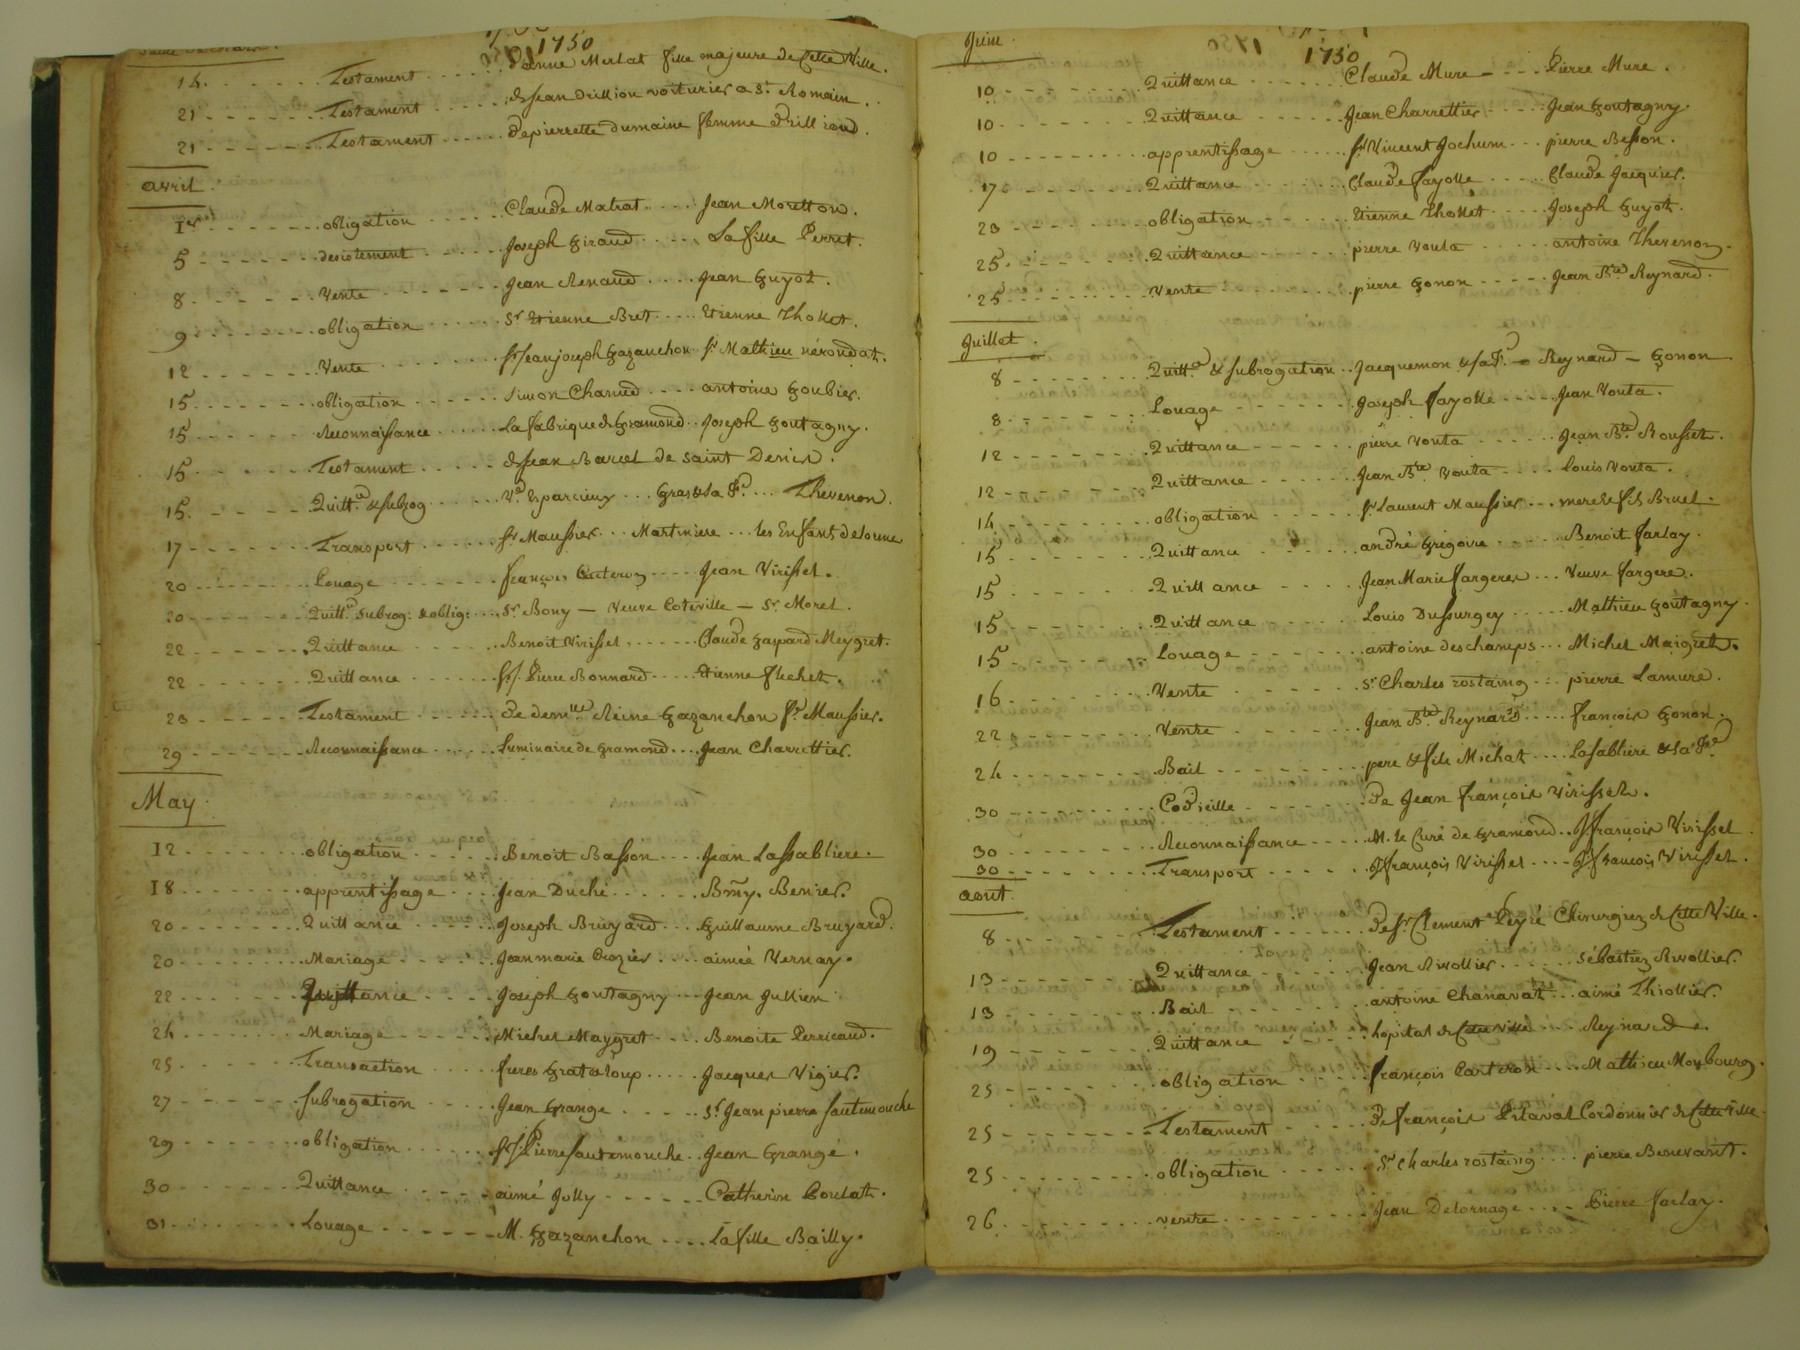 1750
14 Testament d'anne Merlat fille majeure de Cette Ville.
21 Testament de Jean drillion voiturier a St. Romain.
21 Testament de pierrette dumaine femme drilliond.
avril
1er obligation Claude Matrat Jean Moretton.
5 desistement Joseph Giraud La fille Perret.
8 Vente Jean Renaud Jean Guyot.
9 obligation Sr Etienne Bret Etienne Thollet.
12 Vente Sr Jean joseph Gazanchon Sr. Mathieu nérondat.
15 obligation Simon Charud antoine Goubier.
15 Reconnaissance La fabrique de Gramond Joseph Goutagny.
15 Testament de Jean Barcel de saint Denis.
15 Quitt.ce & subrog Ve Eparcieux Gras & sa Fe. Thevenon.
17 Transport Sr Maussier Martiniere les Enfants
20 Louage françois Carteron Jean Virisset.
20 Quitt.ce Subrog: & oblig: Sr Bony – Veuve Coteville – Sr. Moret.
22 Quittance Benoit Virisset Claude Gaspard Meygret.
22 Quittance Sr J. Pierre Bonnard Etienne flechet.
23 Testament De demlle Reine Gazanchon fe Maussier.
29 Reconnaissance Luminaire de Gramond Jean Charrettier.
May
12 obligation Benoit Basson Jean Lassabliere.
18 apprentissage Jean Duché Bmy. Benier.
20 Quittance Joseph Bruyard Guillaume Bruyard.
20 Mariage Jean marie Crozier aimée Vernay.
22 Quittance Joseph Goutagny Jean Jullien
24 Mariage Michel Maygret Benoite Perricaud.
25 Transaction freres Grataloup Jacques Vigier.
27 subrogation Jean Grange Sr Jean pierre sautemouche
29 obligation Sr J Pierre sautemouche Jean Grange.
30 Quittance aimé Jully Catherin Coulat.
31 Louage M. Gazanchon La fille Bailly.
Juin
1750
10 Quittance Claude Mure Pierre Mure.
10 Quittance Jean Charrettier Jean Goutagny.
10 apprentissage Sr Vincent Jochum pierre Besson.
17 Quittance Claude fayolle Claude Jacquier.
23 obligation Etienne Thollet Joseph Guyot.
25 Quittance pierre Vouta antoine Thevenon.
25 Vente pierre Gonon Jean Bte Reynard.
Juillet.
8 Quitt.ce & subrogation Jacquemon & sa fe – Reynard – Gonon
8 Louage Joseph fayolle Jean Vouta.
12 Quittance pierre Vouta Jean Bte Rousset.
12 Quittance Jean Bte Vouta Louis Vouta.
14 obligation Sr Laurent Maussier mere & fils Bruel.
15 Quittance andré Gregoire Benoit farlay.
15 Quittance Jean Marie fargere Veuve fargere.
15 Quittance Louis Dussurgey Mathieu Goutagny.
15 Louage antoine deschamps Michel Maigret.
16 Vente Sr Charles rostaing pierre Lamure.
22 Vente Jean Bte Reynard francois Gonon.
24 Bail pere & fils Michat Lasabliere & sa fe
30 Codicille De Jean françois Virisset.
30 Reconnaissance M. le Curé de Gramond J françois Virisset
30 Transport J françois Virisset J françois Virisset.
aout
8 Testament De Sr Clement Peyré Chirurgien de Cette Ville.
13 Quittance Jean Rivollier sébastien Rivollier.
13 Bail antoine Chanavat aimé Thiollier.
19 Quittance hopital de Cette ville Reynard
25 obligation françois Carteron Mathieu Monbourg.
25 Testament De françois Pitaval Cordonnier de Cette Ville.
25 obligation Sr Charles rostaing pierre Benevant.
26 vente Jean Delornage Pierre farlay.